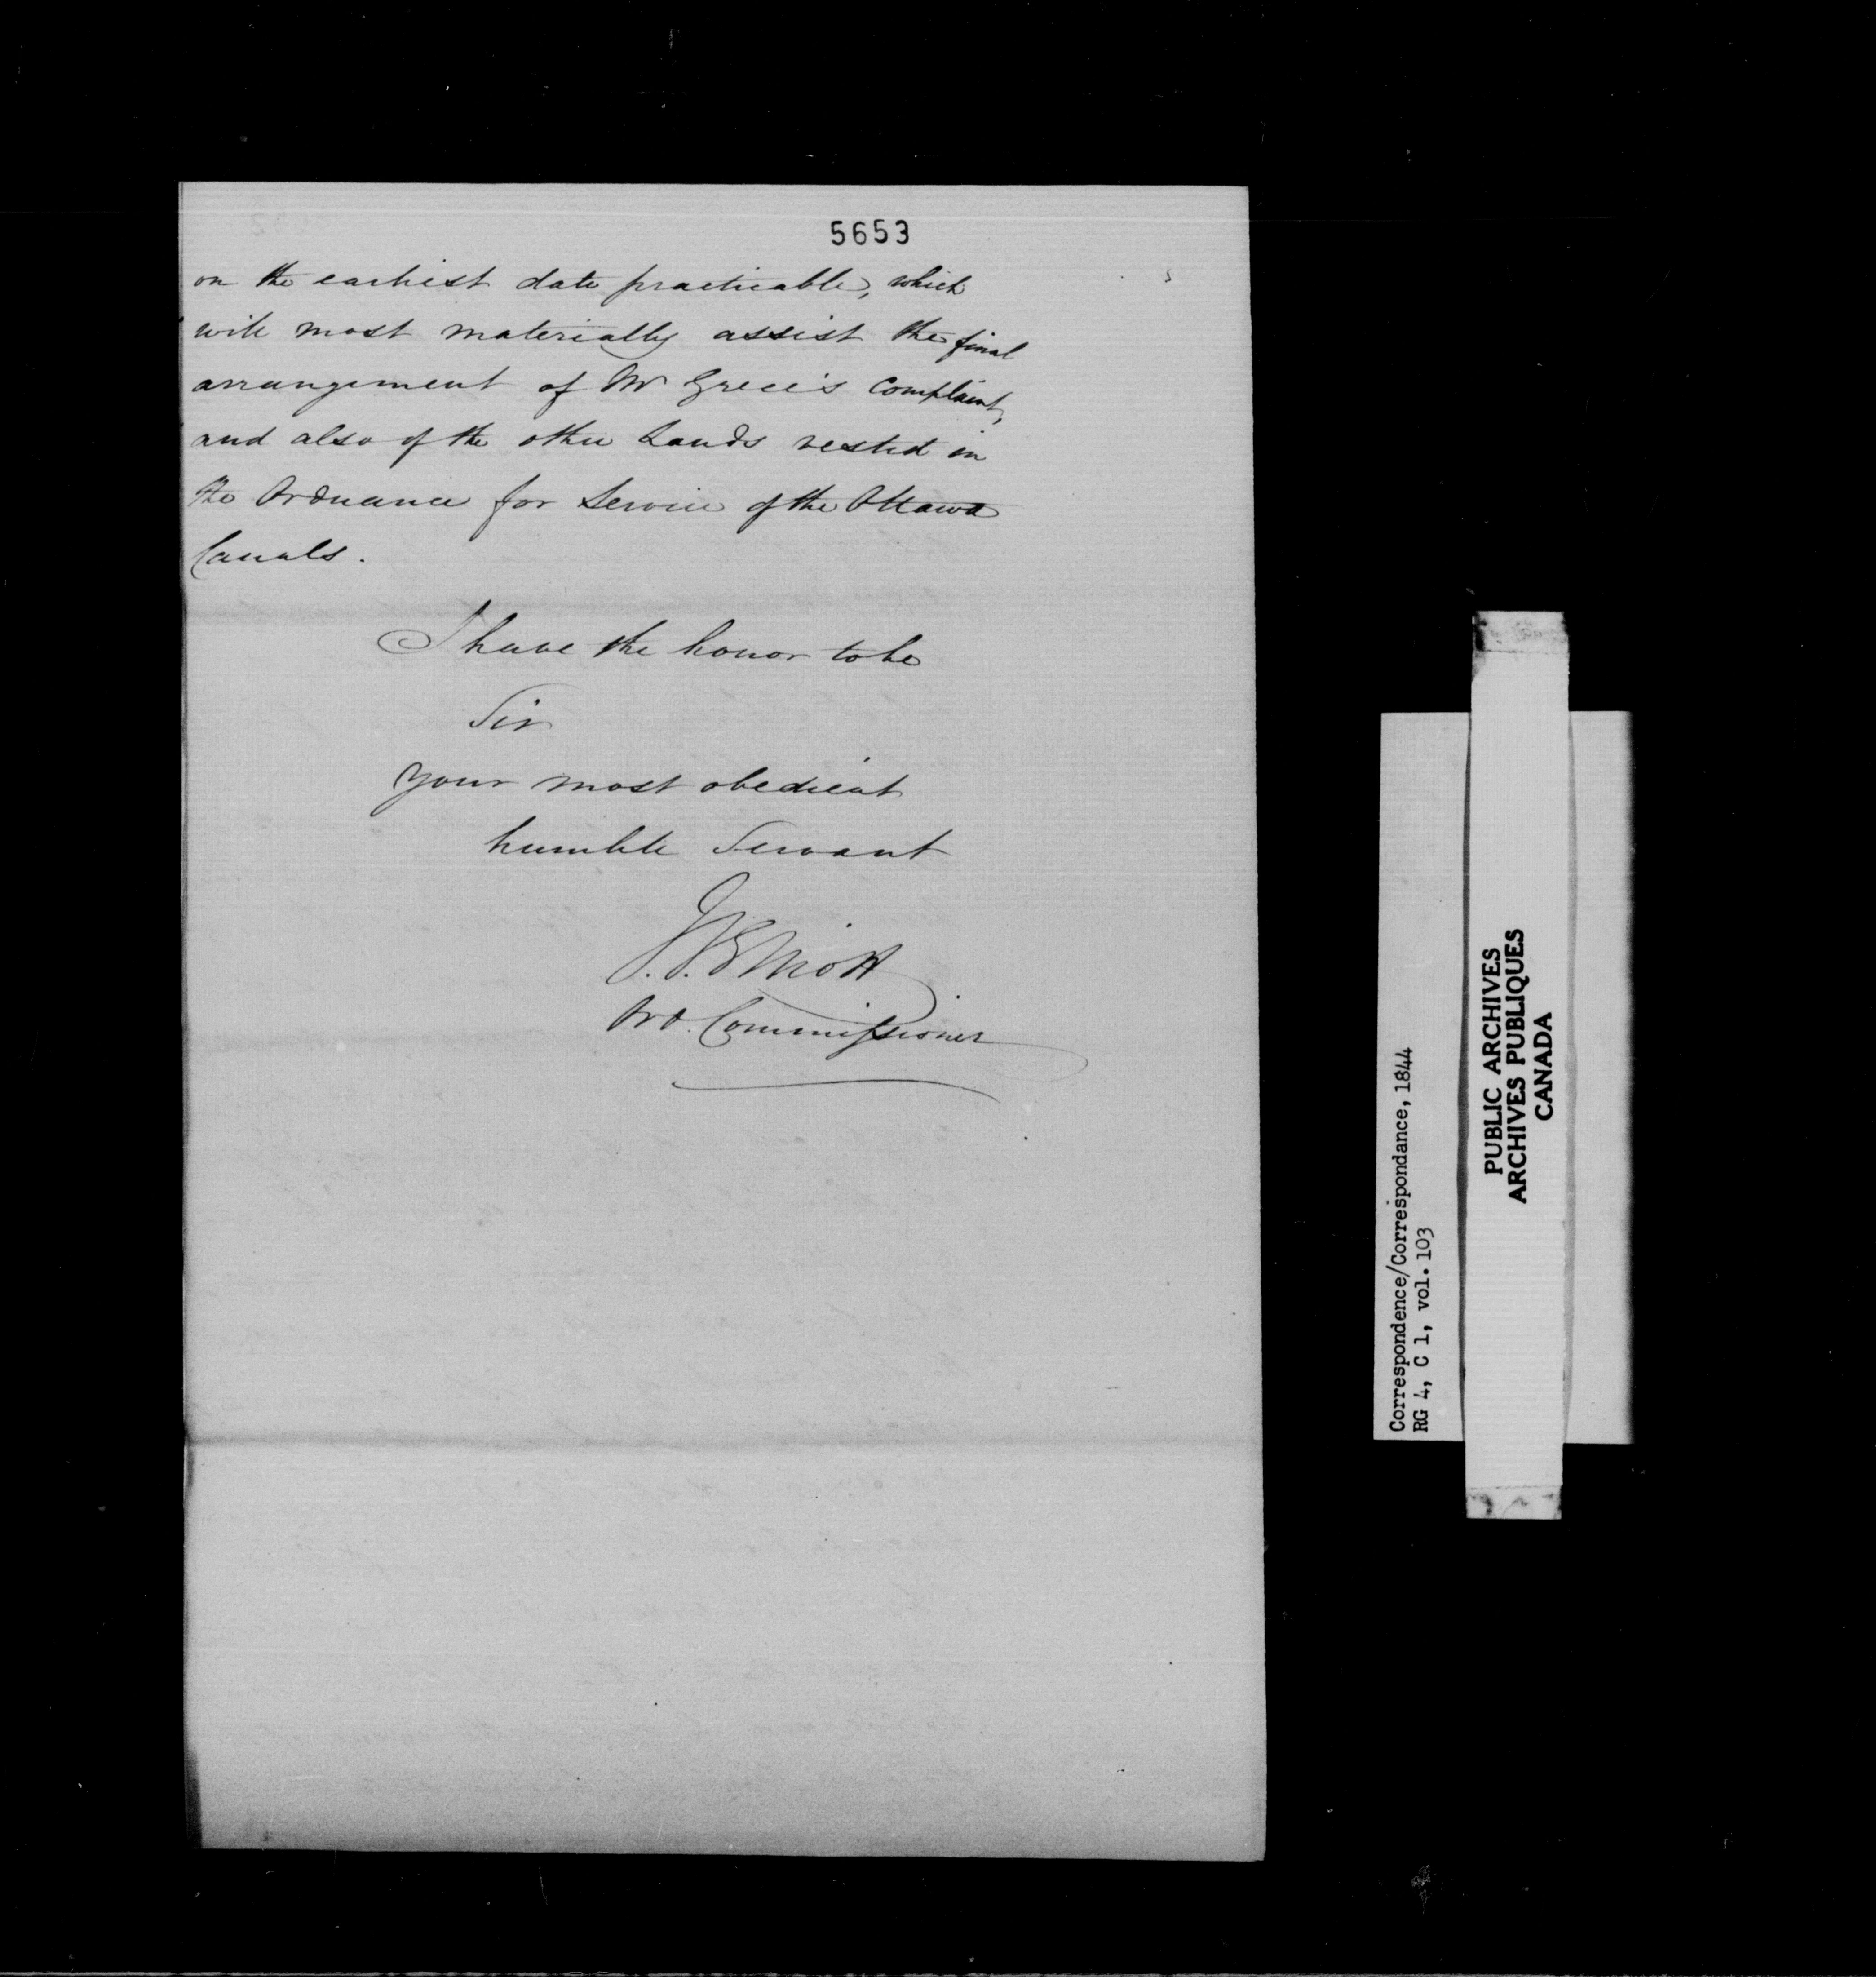 5653
on the earliest date practicable, which
will most materially assist the final
arrangement of Mr Grece's Complaint,
and also of the other Lands vested in
the Ordnance for Service of the Ottawa
Canals.
I have the honor to be
Sir
Your most obedient
humble Servant
Elliott
Ord. Commissioner
Correspondence/Correspondance, 1844
RG 4, C 1, vol. 103
PUBLIC ARCHIVES
ARCHIVES PUBLIQUES
CANADA